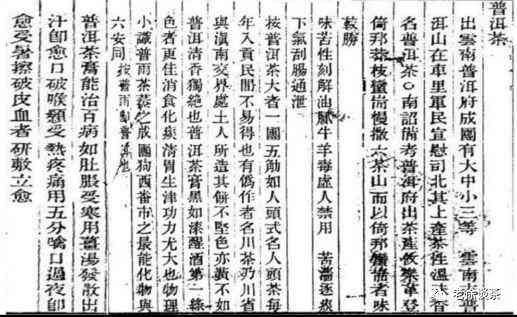 普洱茶
出雲南普洱府成團有大中小三等 雲南志普
洱山在車里軍民宣慰司北其上產茶性溫味香
名普洱茶○南詔備考普洱府出茶產攸樂革登
倚邦莽枝蠻耑慢撒六茶山而以倚邦蠻耑者味
較勝
味苦性刻解油膩牛羊毒虛人禁用 苦澀逐痰
下氣刮腸通泄
按普洱茶大者一團五觔如人頭式名人頭茶每
年入貢民間不易得也有偽作者名川茶乃川省
與滇南交界處土人所造其餅不堅色亦黃不如
普洱清香獨絕也普洱茶膏黑如漆醒酒第一綠
色者更佳消食化痰清胃生津功力尤大也物理
小識普雨茶蒸之成團狗西番市之最能化物與
六安同 按普雨卽普洱也
普洱茶膏能治百病如肚脹受寒用薑湯發散出
汗卽愈口破喉顙受熱疼痛用五分噙口過夜卽
愈受暑擦破皮血者研敷立愈